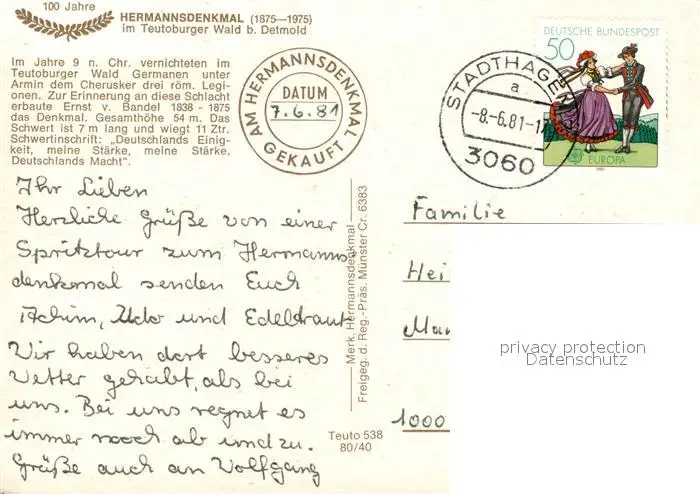 100 Jahre
HERMANNSDENKMAL (1875—1975)
im Teutoburger Wald b. Detmold
Im Jahre 9 n. Chr. vernichteten im
Teutoburger Wald Germanen unter
Armin dem Cherusker drei röm. Legi-
onen. Zur Erinnerung an diese Schlacht
erbaute Ernst v. Bandel 1838 - 1875
das Denkmal. Gesamthöhe 54 m. Das
Schwert ist 7 m lang und wiegt 11 Ztr.
Schwertinschrift: „Deutschlands Einig-
keit, meine Stärke, meine Stärke,
Deutschlands Macht“.
AM HERMANNSDENKMAL
DATUM
7.6.81
GEKAUFT
STADTHAGEN
a
-8.-6.81-1
3060
DEUTSCHE BUNDESPOST
50
EUROPA
1981
Ihr Lieben
Herzliche Grüße von einer
Spritztour zum Hermanns-
denkmal senden Euch
Achim, Udo und Edeltraut
Wir haben dort besseres
Wetter gehabt, als bei
uns. Bei uns regnet es
immer noch ab und zu.
Grüße auch an Wolfgang
Merk. Hermannsdenkmal
Freigeg. d. Reg.-Präs. Münster Cr. 6383
Teuto 538
80/40
Familie
Hei
Man
1000
privacy protection
Datenschutz